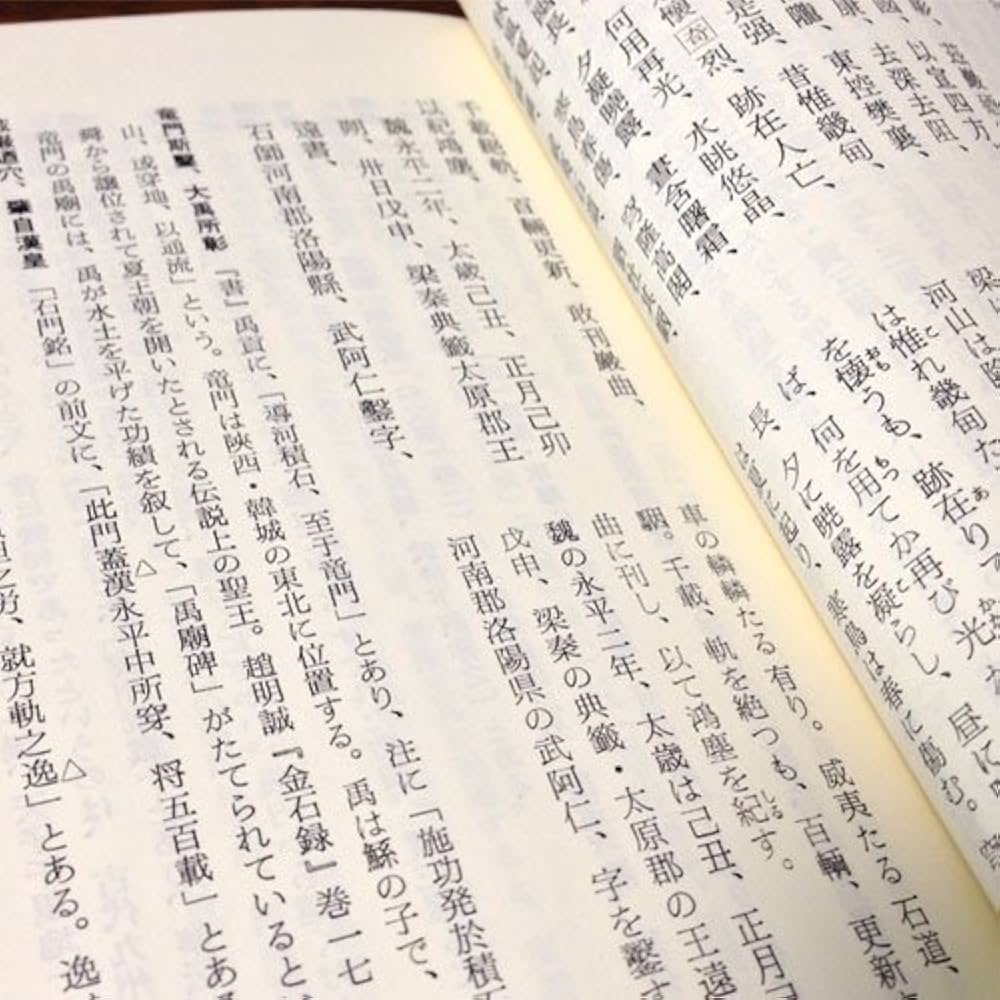 以宣四方、
去深去阻、
東控樊襄、
昔惟畿甸、
跡在人亡、
是强、
水眺悠晶、
奇烈、
晝含曙霜、
何用再光、
夕凝曉露、
穹隆高閣、
千載絶軌、百輛更新、敢刊巖曲、
以紀鴻塵、
魏永平二年、太歳己丑、正月己卯
朔、卅日戊申、梁秦典籤太原郡王
遠書、
石師河南郡洛陽縣、武阿仁鑿字、
河山は
は惟れ畿甸た
を懐うも、跡在りて
ば、何を用てか再び光
長、夕に曉露を凝らし、昼に
寒鳥は春に傷む。
車の轔轔たる有り。威夷たる石道、
駟。千載、軌を絶つも、百輛、更新
曲に刊し、以て鴻塵を紀す。
魏の永平二年、太歳は己丑、正月
戊申、梁秦の典籤・太原郡の王遠
河南郡洛陽県の武阿仁、字を鑿す
竜門斯鑿、大禹所彰　『書』禹貢に、「導河積石、至于竜門」とあり、注に「施功発於積石
山、或穿地、以通流」という。竜門は陝西・韓城の東北に位置する。禹は鯀の子で、
舜から譲位されて夏王朝を開いたとされる伝説上の聖王。趙明誠『金石録』巻一七
竜門の禹廟には、禹が水土を平げた功績を叙して、「禹廟碑」がたてられていると
穴、肇自漢皇　「石門銘」の前文に、「此門蓋漢永平中所穿、将五百載」とあ
之労、就方軌之逸」とある。逸